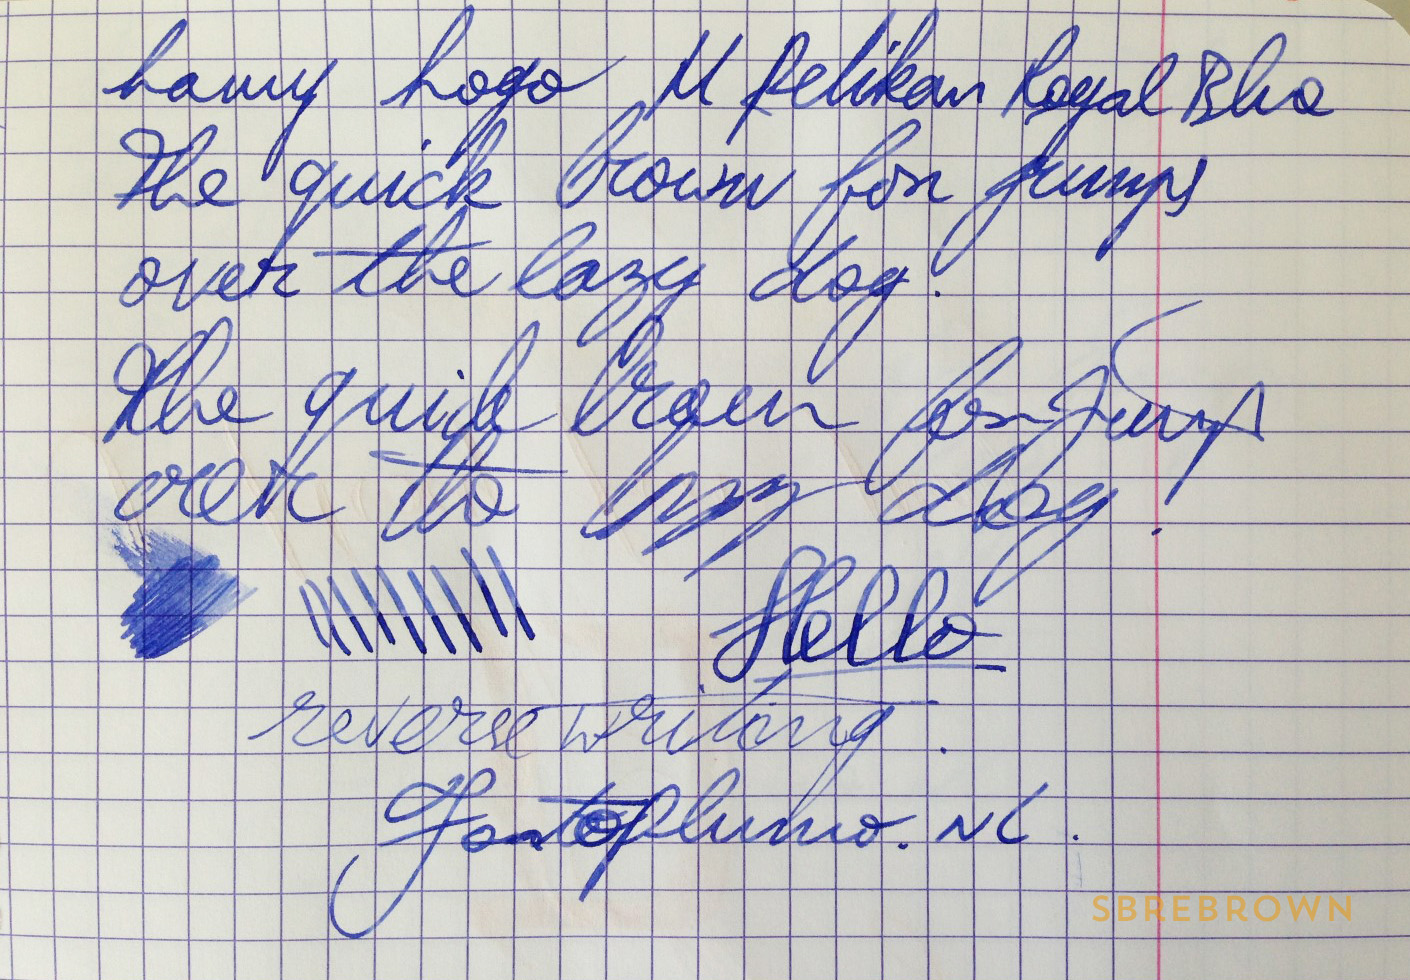 Lamy Logo M Pelikan Royal Blue
The quick brown fox jumps
over the lazy dog.
The quick brown fox jumps
over the lazy dog!
Hello
reverse writing.
Fontoplumo.NL.
SBREBROWN